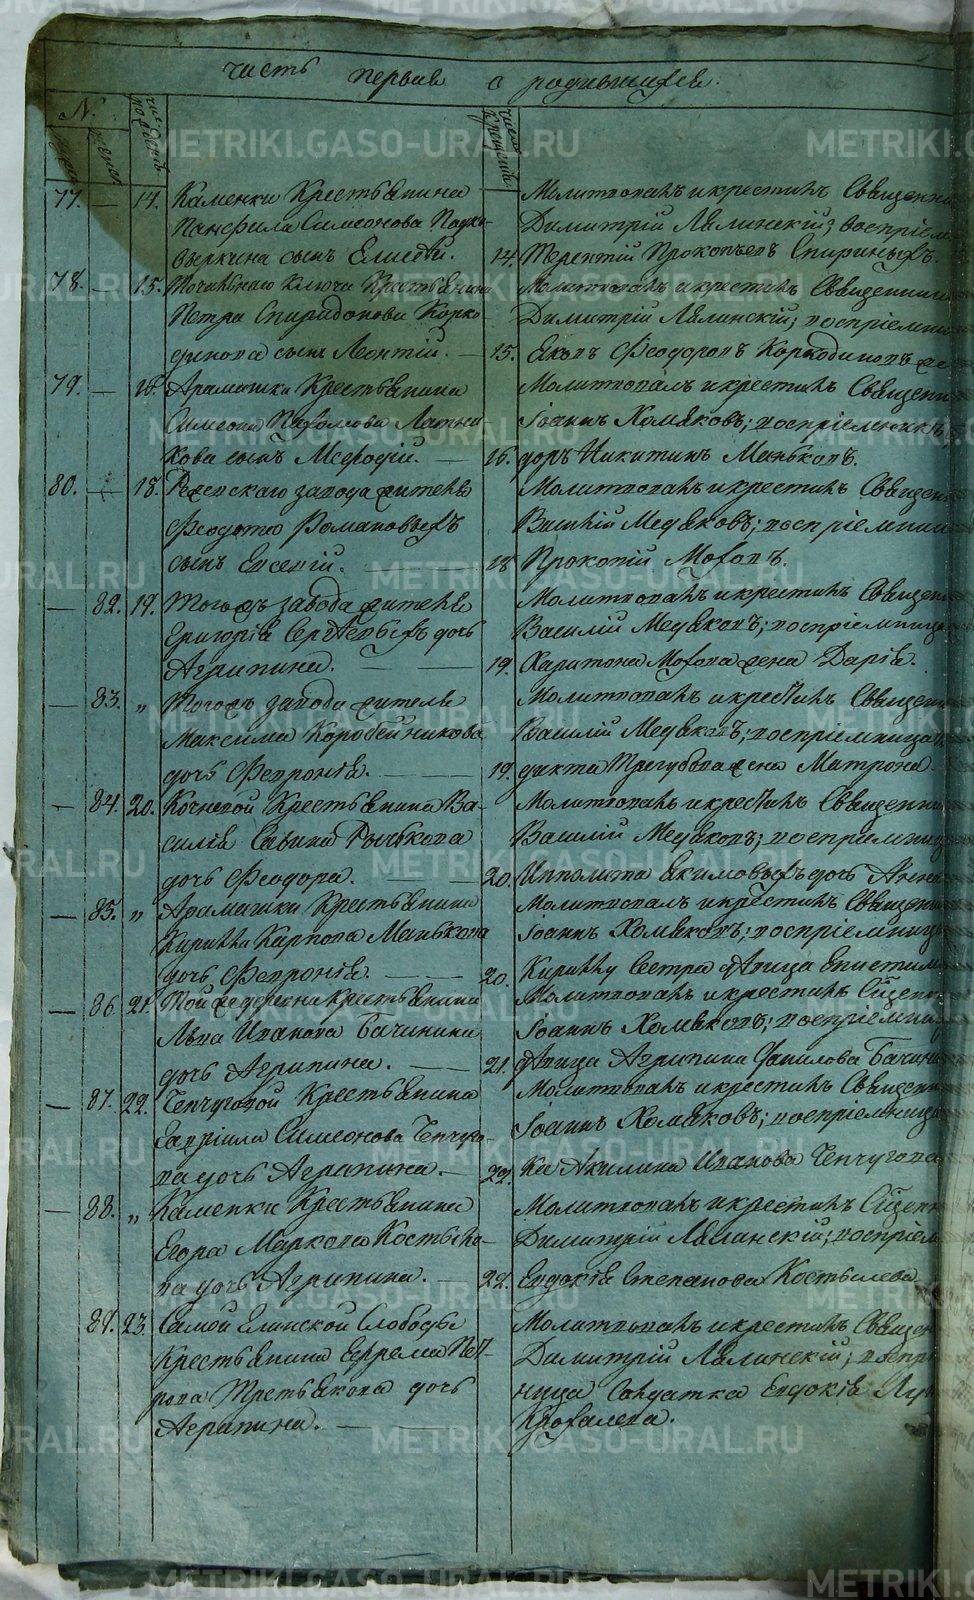 часть первая о родившихся.
№
77. — 14. Каменки Крестьянина
Панфила Симеонова Подко-
выркина сынъ Елисей.
Молитвовалъ и крестилъ Священни
Димитрій Лялинскій; воспріем
14. Терентій Прокопьевъ Спириныхъ.
78. — 15. Ключа Крестьянина
Петра Спиридонова Корко-
динова сынъ Леонтій. —
Молитвовалъ и крестилъ Священник
Димитрій Лялинскій; воспріемни
15. Яковъ Феодоровъ Коркодиновъ
79. — 16. Арамашки Крестьянина
Симеона Латни-
кова сынъ Меѳодій. —
Молитвовалъ и крестилъ Священн
Іоаннъ Хомяковъ; воспріемникъ
16. доръ Никитинъ Маньковъ.
80. — 18. Режевскаго завода житель
Феодота Романовыхъ
сынъ Евсевій.
Молитвовалъ и крестилъ Священ
Василій Медяковъ; воспріемни
18. Прокопій Моховъ.
— 82. 19. Тогожъ завода жителя
Григорія Сергѣевыхъ дочь
Агрипина.
Молитвовалъ и крестилъ Священ
Василій Медяковъ; воспріемница
19. Харитона Мохова жена Дарія.
— 83. „ Тогожъ завода жителя
Максима Коробейникова
дочь Февронія.
Молитвовалъ и крестилъ Священ
Василій Медяковъ; воспріемница
19. дикта Трегубова жена Матрона.
— 84. 20. Кочневой Крестьянина Ва-
силія Савина Рычкова
дочь Феодора.
Молитвовалъ и крестилъ Священни
Василій Медяковъ; воспріемниц
20. Ипполита Екимовыхъ дочь Анна
— 85. „ Арамашки Крестьянина
Кирилла Карпова Манькова
дочь Февронія.
Молитвовалъ и крестилъ Священни
Іоаннъ Хомяковъ; воспріемниц
20. Кириллу Сестра дѣвица Епистим
— 86. 21. Той же деревни Крестьянина
Льва Иванова Бачинина
дочь Агрипина.
Молитвовалъ и крестилъ Сщенн
Іоаннъ Хомяковъ; воспріемниц
21. дѣвица Агрипина Данилова Бачин
— 87. 22. Чепчуговой Крестьянина
Гавріила Симеонова Чепчуго-
ва дочь Агрипина. —
Молитвовалъ и крестилъ Священ
Іоаннъ Хомяковъ; воспріемница
22. ка Акилина Иванова Чепчугова
— 88. „ Каменки Крестьянина
Егора Маркова Костыле-
ва дочь Агрипина. —
Молитвовалъ и крестилъ Сщенн
Димитрій Лялинскій; воспріем
22. Евдокія Степанова Костылева
89. 23. Самой Слободы
Крестьянина Ефрема Пет-
рова Третьякова дочь
Агрипина.
Молитвовалъ и крестилъ Священ
Димитрій Лялинскій; воспр
ница Солдатка Евдокія
METRIKI.GASO-URAL.RU